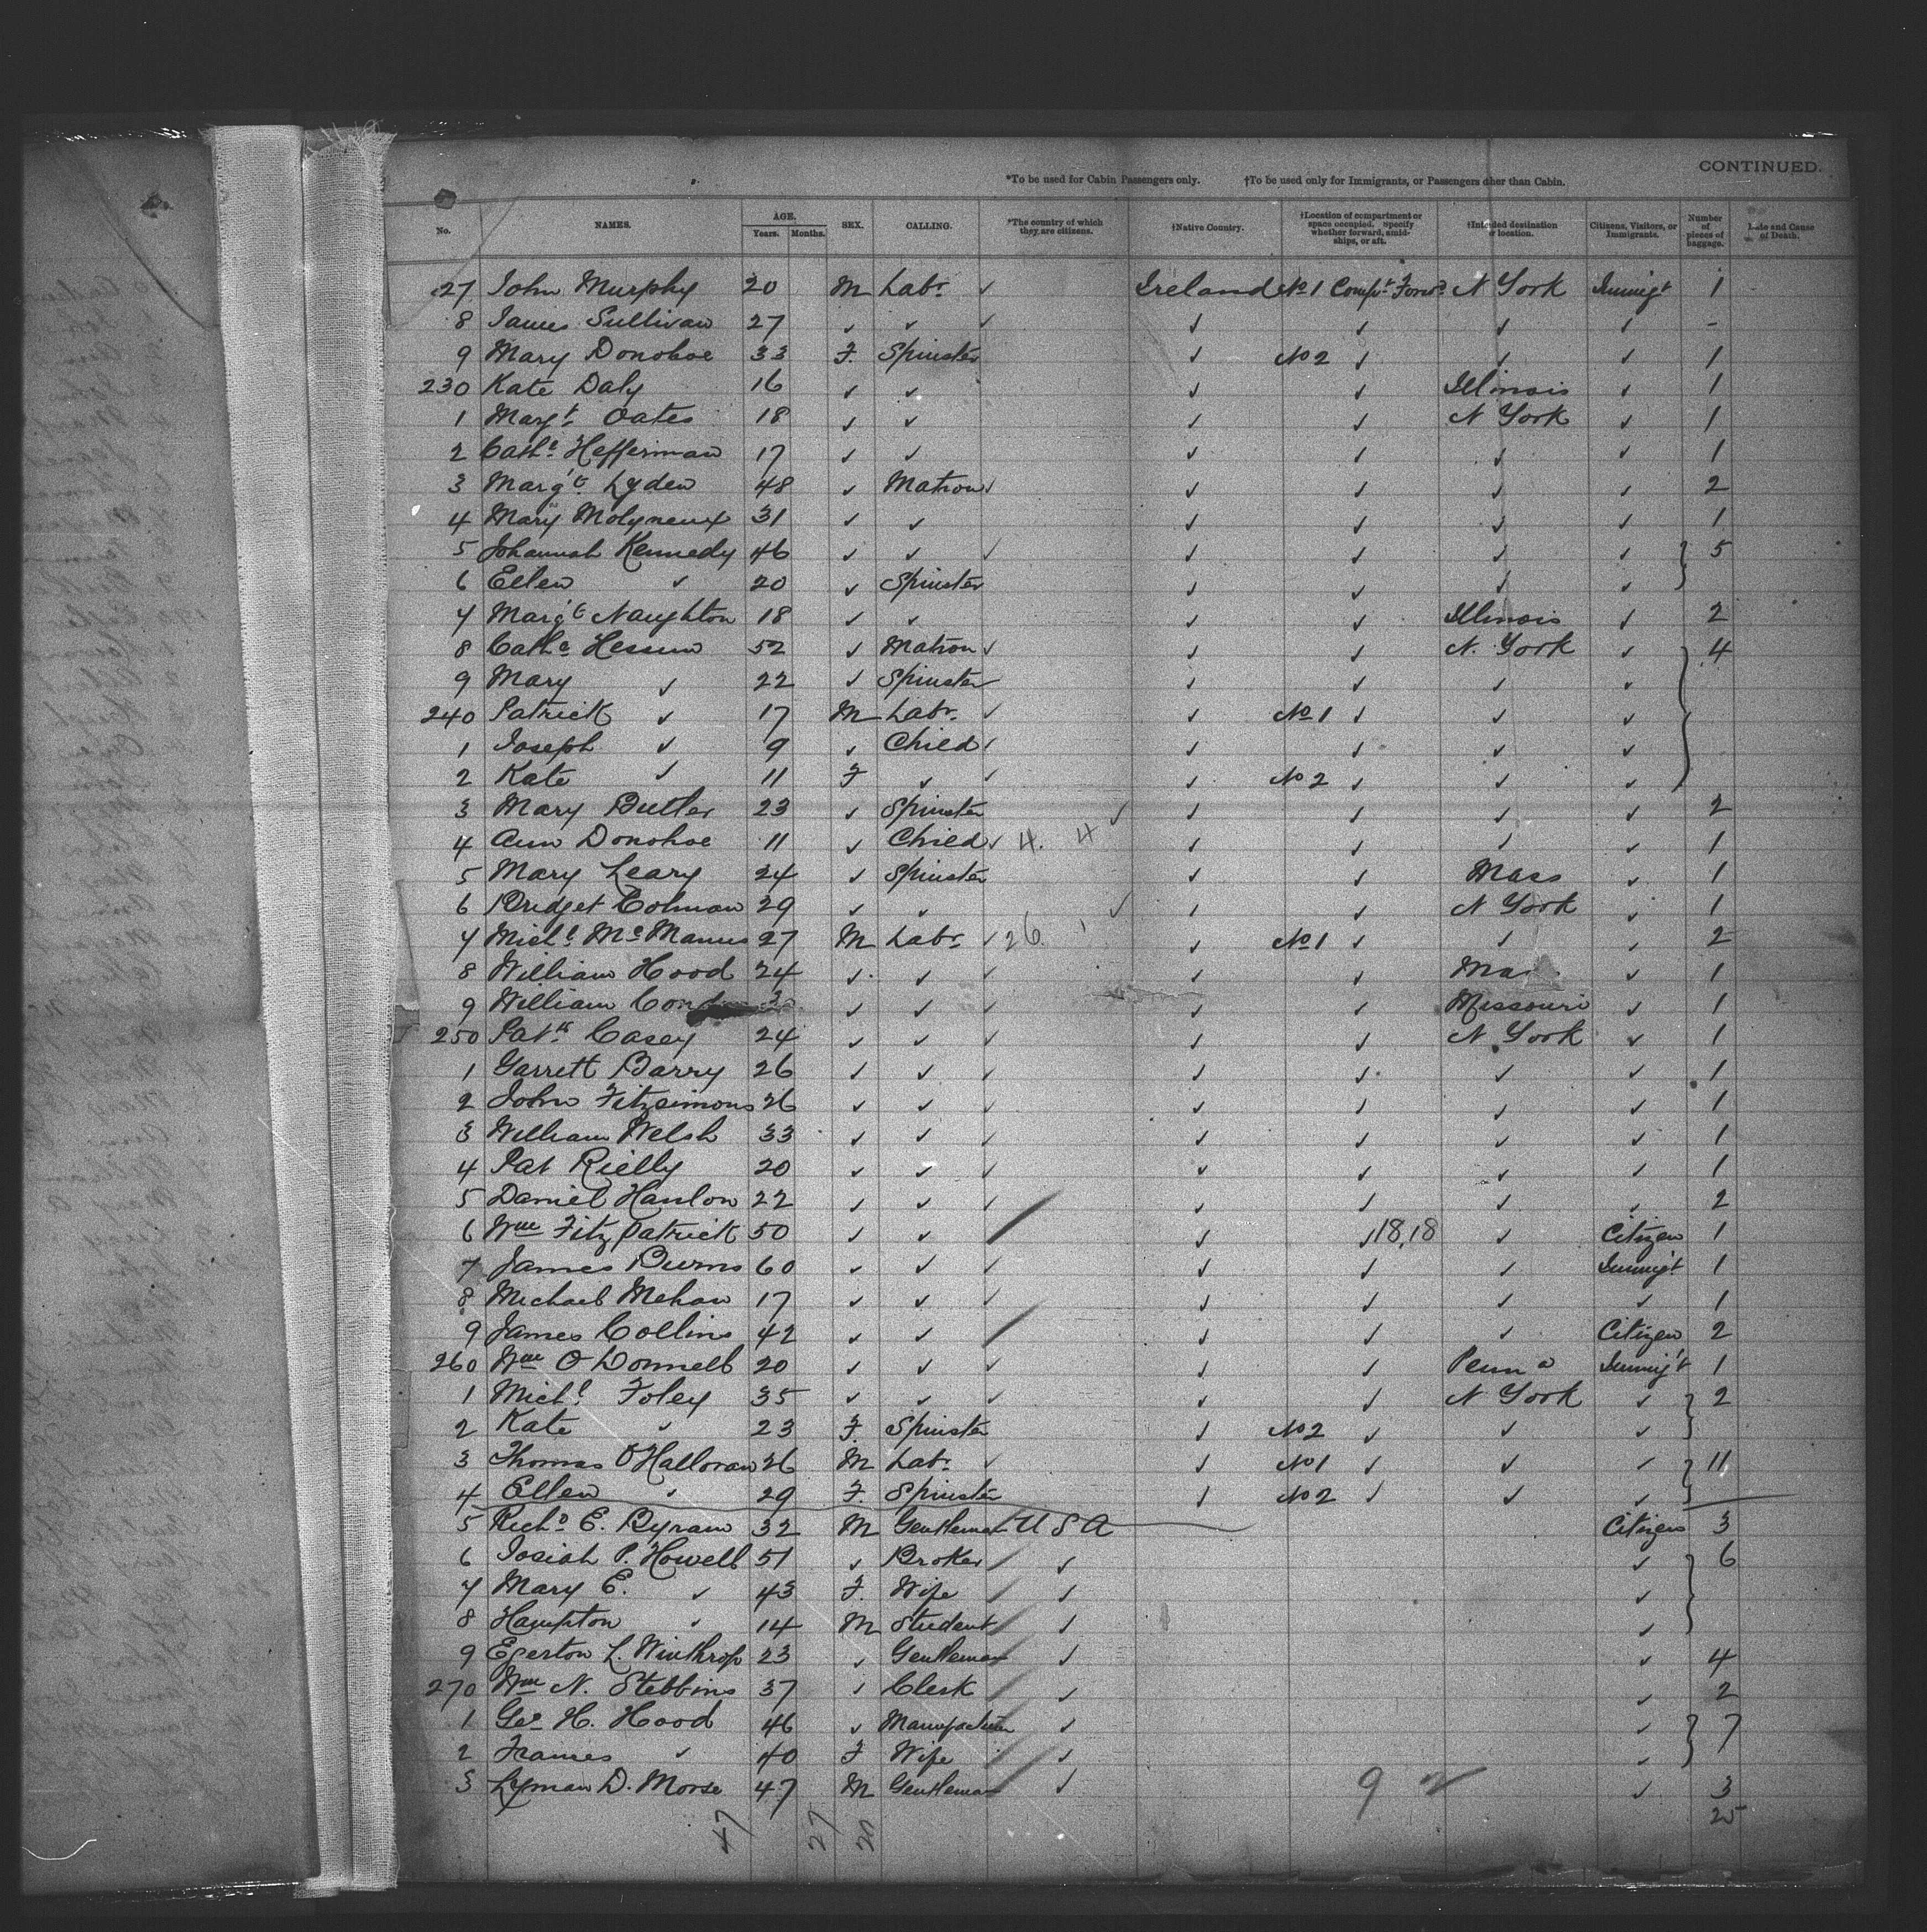 CONTINUED.
*To be used for Cabin Passengers only. †To be used only for Immigrants, or Passengers other than Cabin.
No. NAMES. AGE. Years. Months. SEX. CALLING. *The country of which they are citizens. †Native Country. †Location of compartment or space occupied. Specify whether forward, amidships, or aft. †Intended destination or location. Citizens, Visitors, or Immigrants. Number of pieces of baggage. Date and Cause of Death.
27 John Murphy 20 M Labr ✓ Ireland No 1 Compt Forwd N York Immigt 1
8 James Sullivan 27 ✓ ✓ ✓ ✓ ✓ ✓ ✓ -
9 Mary Donohoe 33 F. Spinster ✓ No 2 ✓ ✓ ✓ 1
230 Kate Daly 16 ✓ ✓ ✓ ✓ Illinois ✓ 1
1 Margt Oates 18 ✓ ✓ ✓ ✓ N York ✓ 1
2 Cathe Hefferman 17 ✓ ✓ ✓ ✓ ✓ ✓ 1
3 Margt Lyden 48 ✓ Matron ✓ ✓ ✓ ✓ ✓ 2
4 Mary Molyneux 31 ✓ ✓ ✓ ✓ ✓ ✓ 1
5 Johannah Kennedy 46 ✓ ✓ ✓ ✓ ✓ ✓ ✓ } 5
6 Ellen ✓ 20 ✓ Spinster ✓ ✓ ✓ ✓
7 Margt Naughton 18 ✓ ✓ ✓ ✓ Illinois ✓ 2
8 Cathe Hession 52 ✓ Matron ✓ ✓ ✓ N. York ✓ } 4
9 Mary ✓ 22 ✓ Spinster ✓ ✓ ✓ ✓
240 Patrick ✓ 17 M Labr ✓ ✓ No 1 ✓ ✓ ✓
1 Joseph ✓ 9 ✓ Child ✓ ✓ ✓ ✓ ✓
2 Kate ✓ 11 F ✓ ✓ ✓ No 2 ✓ ✓ ✓
3 Mary Butler 23 ✓ Spinster ✓ ✓ ✓ ✓ ✓ 2
4 Ann Donohoe 11 ✓ Child ✓ 4. 4 ✓ ✓ ✓ ✓ 1
5 Mary Leary 24 ✓ Spinster ✓ ✓ Mass ✓ 1
6 Bridget Colman 29 ✓ ✓ ✓ ✓ ✓ N York ✓ 1
7 Michl McManus 27 M Labr ✓ 26. ✓ No 1 ✓ ✓ ✓ 2
8 William Hood 24 ✓ ✓ ✓ ✓ ✓ ✓ 1
9 William ✓ ✓ ✓ ✓ ✓ Missouri ✓ 1
250 Patk Casey 24 ✓ ✓ ✓ ✓ ✓ N York ✓ 1
1 Garrett Barry 26 ✓ ✓ ✓ ✓ ✓ ✓ ✓ 1
2 John Fitzsimons 26 ✓ ✓ ✓ ✓ ✓ ✓ ✓ 1
3 William Welsh 33 ✓ ✓ ✓ ✓ ✓ ✓ ✓ 1
4 Pat Rielly 20 ✓ ✓ ✓ ✓ ✓ ✓ ✓ 1
5 Daniel Hanlon 22 ✓ ✓ ✓ ✓ ✓ ✓ ✓ 2
6 Wm FitzPatrick 50 ✓ ✓ ✓ ✓ 18,18 ✓ Citizen 1
7 James Burns 60 ✓ ✓ ✓ ✓ ✓ ✓ Immigt 1
8 Michael Mehan 17 ✓ ✓ ✓ ✓ ✓ ✓ ✓ 1
9 James Collins 42 ✓ ✓ ✓ ✓ ✓ Citizen 2
260 Wm O Donnell 20 ✓ ✓ ✓ ✓ ✓ Penna Immigt 1
1 Michl Foley 35 ✓ ✓ ✓ ✓ ✓ N York ✓ } 2
2 Kate ✓ 23 F. Spinster ✓ No 2 ✓ ✓ ✓
3 Thomas O'Halloran 26 M Labr ✓ ✓ No 1 ✓ ✓ ✓ } 11
4 Ellen ✓ 29 F. Spinster ✓ No 2 ✓ ✓ ✓
5 Richd E. Byram 32 M Gentleman U S A Citizen 3
6 Josiah P. Howell 51 ✓ Broker ✓ ✓ } 6
7 Mary E. ✓ 43 F. Wife ✓ ✓
8 Hampton ✓ 14 M Student ✓ ✓
9 Egerton L. Winthrop 23 ✓ Gentleman ✓ ✓ 4
270 Wm N. Stebbins 37 ✓ Clerk ✓ ✓ 2
1 Geo H. Hood 46 ✓ Manufacturer ✓ ✓ } 7
2 Frances ✓ 40 F Wife ✓ ✓
3 Lyman D. Morse 47 M Gentleman ✓ ✓ 3
9
25
47 27 20